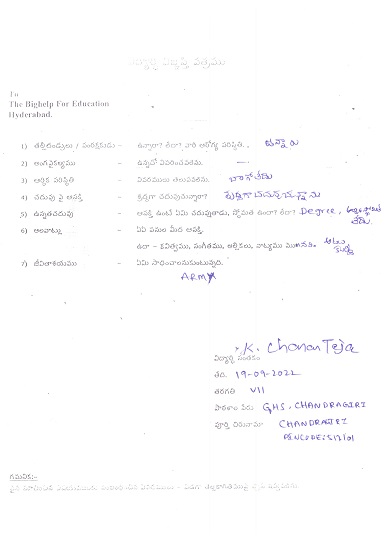 విద్యార్థి విజ్ఞప్తి పత్రము
To
The Bighelp For Education
Hyderabad.
1) తల్లిదండ్రులు / సంరక్షకుడు - ఉన్నారా? లేదా? వారి ఆరోగ్య పరిస్థితి. ఉన్నారు
2) అంగవైకల్యము - ఉన్నచో వివరించవలెను. —
3) ఆర్థిక పరిస్థితి - వివరములు తెలుపవలెను. బాగోలేదు
4) చదువు పై ఆసక్తి - శ్రద్ధగా చదువుచున్నారా?
5) ఉన్నతచదువు - ఆసక్తి ఉంటే ఏమి చదువుతాడు, స్తోమత ఉందా? లేదా? Degree,
6) అలవాట్లు - ఏ ఏ పనుల మీద ఆసక్తి.
ఉదా - కవిత్వము, సంగీతము, అల్లికలు, నాట్యము
7) జీవితాశయము - ఏమి సాధించాలనుకుంటున్నది.
ARMY
K. Charan Teja
విద్యార్థి సంతకం
తేది. 19-09-2022
తరగతి VII
పాఠశాల పేరు GHS, CHANDRAGIRI
పూర్తి చిరునామా CHANDRAGIRI
PINCODE: 517101
గమనిక:-